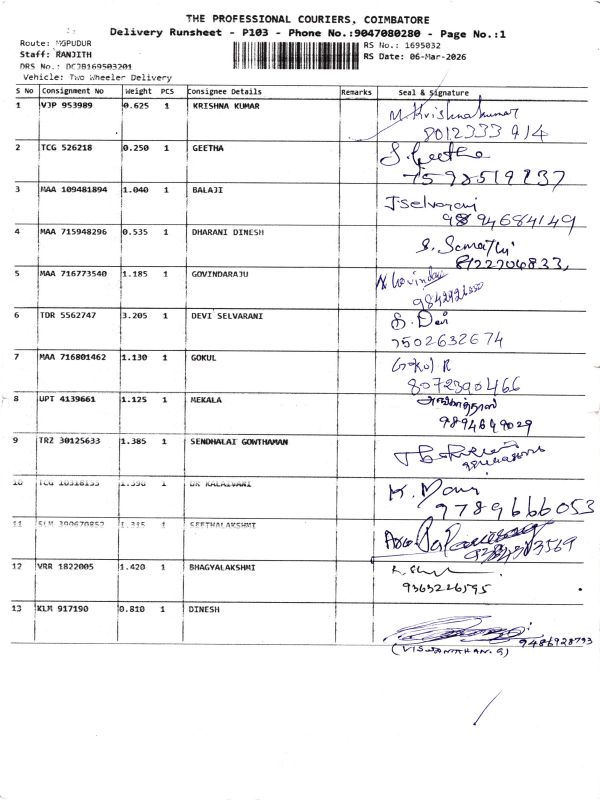 THE PROFESSIONAL COURIERS, COIMBATORE
Delivery Runsheet - P103 - Phone No.:9047080280 - Page No.:1
Route: MGPUDUR
RS No.: 1695032
Staff: RANJITH
RS Date: 06-Mar-2026
DRS No.: DCJB169503201
Vehicle: Two Wheeler Delivery
S No Consignment No Weight PCS Consignee Details Remarks Seal & Signature
1 VJP 953989 0.625 1 KRISHNA KUMAR M. Krishnakumar
8012333 914
2 TCG 526218 0.250 1 GEETHA S. Geetha
7598519237
3 MAA 109481894 1.040 1 BALAJI J.selvarani
9894684149
4 MAA 715948296 0.535 1 DHARANI DINESH S. Sumathi
8122204833,
5 MAA 716773540 1.185 1 GOVINDARAJU N. Govindan
6 TDR 5562747 3.205 1 DEVI SELVARANI S. Devi
7502632674
7 MAA 716801462 1.130 1 GOKUL Gokul R
8072390466
8 UPT 4139661 1.125 1 MEKALA
9894649029
9 TRZ 30125633 1.385 1 SENDHALAI GOWTHAMAN
10 TCG 10318133 1.390 1 DR KALAIVANI K. Mani
9789666053
11 SLM 390670852 1.315 1 SEETHALAKSHMI
12 VRR 1822005 1.420 1 BHAGYALAKSHMI
9363226595
13 KLM 917190 0.810 1 DINESH
9486928793
(VISWANATHAN.G)